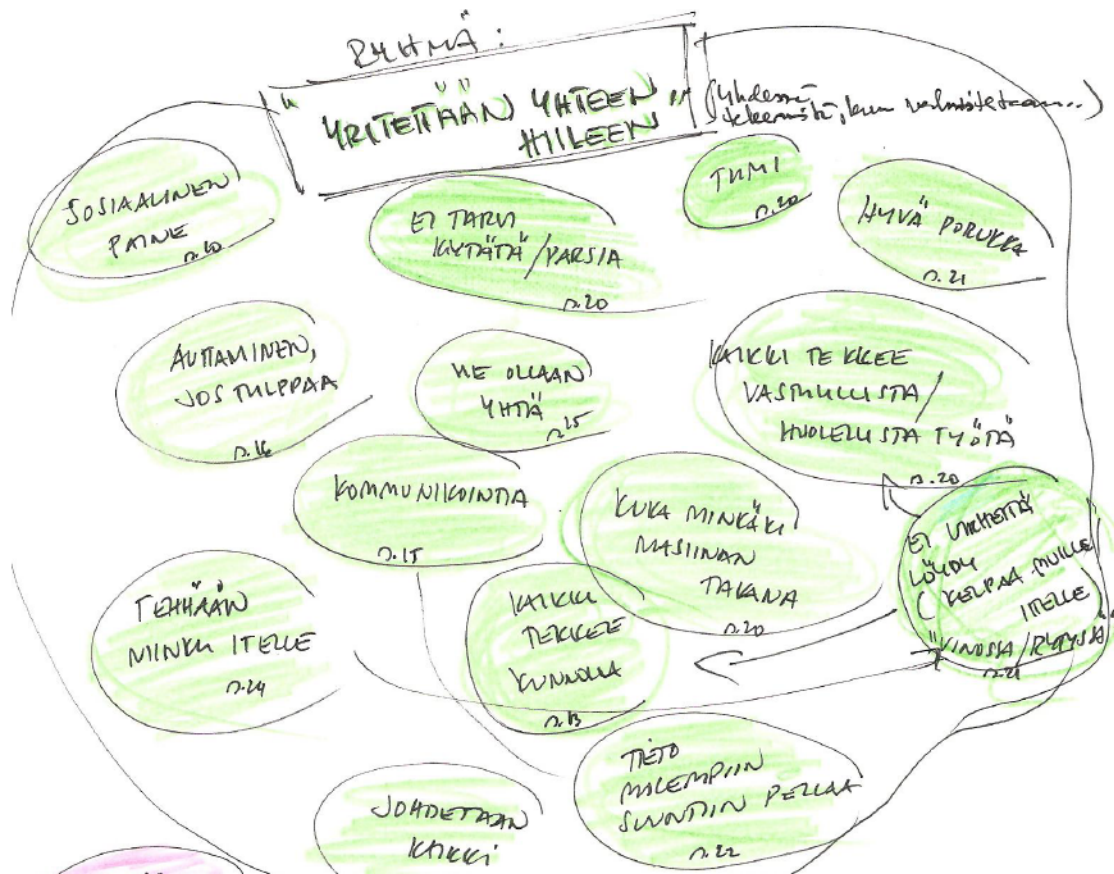 RYHMÄ:
"YRITETÄÄN YHTEEN
HIILEEN"
(yhdessä
tekemistä, kun valmistetaan..)
SOSIAALINEN
PAINE
s.20
EI TARVI
KYTÄTÄ/VARSIA
s.20
TIIMI
s.20
HYVÄ PORUKKA
s.21
AUTTAMINEN,
JOS TULPPAA
s.16
ME OLLAAN
YHTÄ
s.25
KAIKKI TEKKEE
VASTUULLISTA/
HUOLELLISTA TYÖTÄ
s.20
KOMMUNIKOINTIA
s.15
KUKA MINKÄKI
MASIINAN
TAKANA
s.20
EI VIRHETTÄ
LÖYDY
(KELPAA MUILLE
ITELLE
"VINOSSA/RYTYSSÄ"
s.21
TEHHÄÄN
NIINKU ITELLE
s.24
KAIKKI
TEKKEE
KUNNOLLA
s.13
TIETO
MOLEMPIIN
SUUNTIIN PELLAA
s.22
JOHDETAAN
KAIKKI